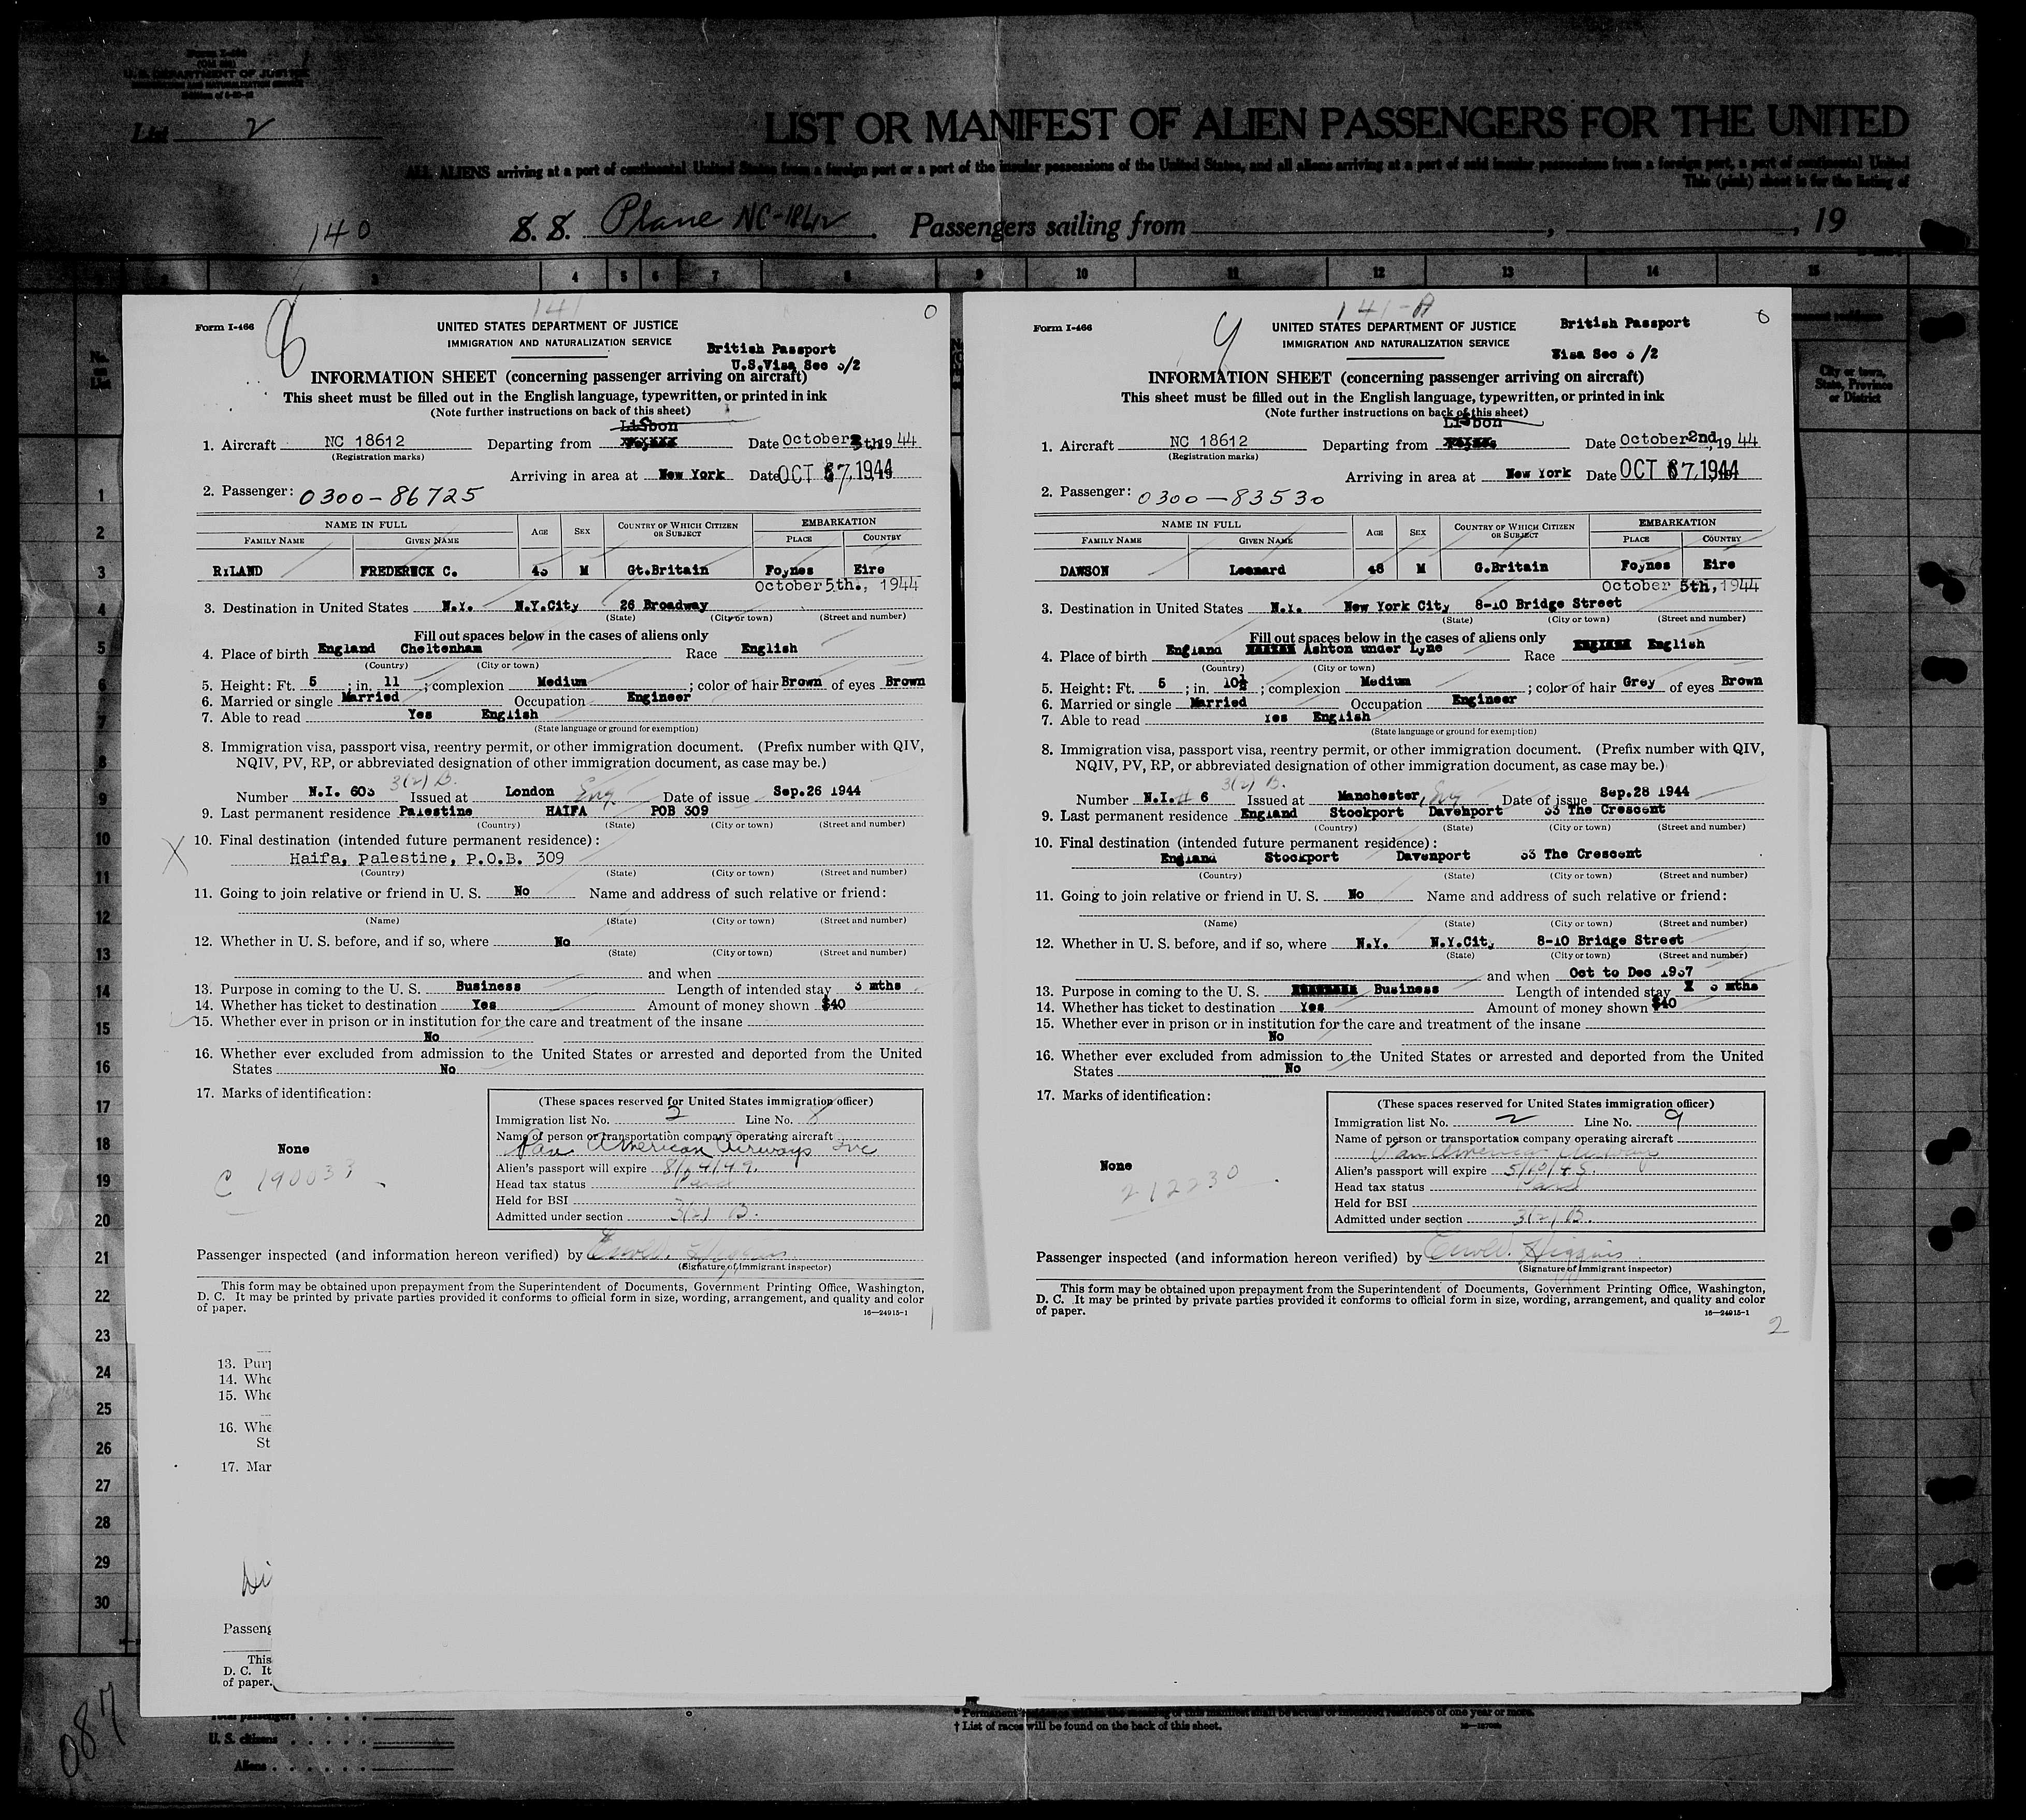 Form I-466
U. S. DEPARTMENT OF JUSTICE
IMMIGRATION AND NATURALIZATION SERVICE
List 2
LIST OR MANIFEST OF ALIEN PASSENGERS FOR THE UNITED
ALL ALIENS arriving at a port of continental United States from a foreign port or a port of the insular possessions of the United States, and all aliens arriving at a port of said insular possessions from a foreign port, a port of continental United
This (pink) sheet is for the listing of
140 S. S. Plane NC-18612 Passengers sailing from , , 19
3 4 5 6 7 8 9 10 11 12 13 14 15
No. on List
City or town, State, Province or District
1
2
3
4
5
6
7
8
9
10
11
12
13
14
15
16
17
18
19
20
21
22
23
24
25
26
27
28
29
30
8
141
0
Form I-466
UNITED STATES DEPARTMENT OF JUSTICE
IMMIGRATION AND NATURALIZATION SERVICE
British Passport
U.S.Visa Sec 3/2
INFORMATION SHEET (concerning passenger arriving on aircraft)
This sheet must be filled out in the English language, typewritten, or printed in ink
(Note further instructions on back of this sheet)
Lisbon
1. Aircraft NC 18612 Departing from Date October th 19 44
(Registration marks)
Arriving in area at New York Date OCT 7, 1944
2. Passenger: 0300-86725
NAME IN FULL AGE SEX COUNTRY OF WHICH CITIZEN OR SUBJECT EMBARKATION
FAMILY NAME GIVEN NAME PLACE COUNTRY
RILAND FREDERICK C. 43 M Gt.Britain Foynes Eire
October 5th., 1944
3. Destination in United States N.Y. N.Y.City 26 Broadway
(State) (City or town) (Street and number)
Fill out spaces below in the cases of aliens only
4. Place of birth England Cheltenham Race English
(Country) (City or town)
5. Height: Ft. 5 ; in. 11 ; complexion Medium ; color of hair Brown of eyes Brown
6. Married or single Married Occupation Engineer
7. Able to read Yes English
(State language or ground for exemption)
8. Immigration visa, passport visa, reentry permit, or other immigration document. (Prefix number with QIV,
NQIV, PV, RP, or abbreviated designation of other immigration document, as case may be.)
3(2) B.
Number N.I. 603 Issued at London Eng. Date of issue Sep.26 1944
9. Last permanent residence Palestine HAIFA POB 309
(Country) (State) (City or town) (Street and number)
X 10. Final destination (intended future permanent residence):
Haifa, Palestine, P.O.B. 309
(Country) (State) (City or town) (Street and number)
11. Going to join relative or friend in U. S. No Name and address of such relative or friend:
(Name) (State) (City or town) (Street and number)
12. Whether in U. S. before, and if so, where No
(State) (City or town) (Street and number)
and when
13. Purpose in coming to the U. S. Business Length of intended stay 3 mths
14. Whether has ticket to destination Yes Amount of money shown $40
15. Whether ever in prison or in institution for the care and treatment of the insane
No
16. Whether ever excluded from admission to the United States or arrested and deported from the United
States No
17. Marks of identification:
None
C 190033
(These spaces reserved for United States immigration officer)
Immigration list No. 2 Line No. 8
Name of person or transportation company operating aircraft
Pan American Airways Inc
Alien's passport will expire 8/14/49.
Head tax status Paid
Held for BSI
Admitted under section 3(2) B.
Passenger inspected (and information hereon verified) by Higgins
(Signature of immigrant inspector)
This form may be obtained upon prepayment from the Superintendent of Documents, Government Printing Office, Washington,
D. C. It may be printed by private parties provided it conforms to official form in size, wording, arrangement, and quality and color
of paper.
16—24915-1
9
141-A
Form I-466
UNITED STATES DEPARTMENT OF JUSTICE
IMMIGRATION AND NATURALIZATION SERVICE
British Passport
Visa Sec 3/2
INFORMATION SHEET (concerning passenger arriving on aircraft)
This sheet must be filled out in the English language, typewritten, or printed in ink
(Note further instructions on back of this sheet)
Lisbon
1. Aircraft NC 18612 Departing from Date October 2nd, 19 44
(Registration marks)
Arriving in area at New York Date OCT 7, 1944
2. Passenger: 0300-83530
NAME IN FULL AGE SEX COUNTRY OF WHICH CITIZEN OR SUBJECT EMBARKATION
FAMILY NAME GIVEN NAME PLACE COUNTRY
DAWSON Leonard 48 M G.Britain Foynes Eire
October 5th, 1944
3. Destination in United States N.Y. New York City 8-10 Bridge Street
(State) (City or town) (Street and number)
Fill out spaces below in the cases of aliens only
4. Place of birth England Ashton under Lyne Race English
(Country) (City or town)
5. Height: Ft. 5 ; in. 10½ ; complexion Medium ; color of hair Grey of eyes Brown
6. Married or single Married Occupation Engineer
7. Able to read Yes English
(State language or ground for exemption)
8. Immigration visa, passport visa, reentry permit, or other immigration document. (Prefix number with QIV,
NQIV, PV, RP, or abbreviated designation of other immigration document, as case may be.)
3(2) B.
Number N.I. # 6 Issued at Manchester, Eng Date of issue Sep.28 1944
9. Last permanent residence England Stockport Davenport 33 The Crescent
(Country) (State) (City or town) (Street and number)
10. Final destination (intended future permanent residence):
England Stockport Davenport 33 The Crescent
(Country) (State) (City or town) (Street and number)
11. Going to join relative or friend in U. S. No Name and address of such relative or friend:
(Name) (State) (City or town) (Street and number)
12. Whether in U. S. before, and if so, where N.Y. N.Y.City 8-10 Bridge Street
(State) (City or town) (Street and number)
and when Oct to Dec 1937
13. Purpose in coming to the U. S. Business Length of intended stay 3 mths
14. Whether has ticket to destination Yes Amount of money shown $40
15. Whether ever in prison or in institution for the care and treatment of the insane
No
16. Whether ever excluded from admission to the United States or arrested and deported from the United
States No
17. Marks of identification:
None
212230
(These spaces reserved for United States immigration officer)
Immigration list No. 2 Line No. 9
Name of person or transportation company operating aircraft
Pan American Airways
Alien's passport will expire 5/10/45.
Head tax status Paid
Held for BSI
Admitted under section 3(2) B.
Passenger inspected (and information hereon verified) by Higgins
(Signature of immigrant inspector)
This form may be obtained upon prepayment from the Superintendent of Documents, Government Printing Office, Washington,
D. C. It may be printed by private parties provided it conforms to official form in size, wording, arrangement, and quality and color
of paper.
16—24915-1
2
13. Purp
14. Whe
15. Whe
16. Whe
St
17. Mar
Di
Passeng
This
D. C. It
of paper.
087
Total passengers
U. S. citizens
Aliens
* Permanent residence within the meaning of this manifest shall be actual or intended residence of one year or more.
† List of races will be found on the back of this sheet.